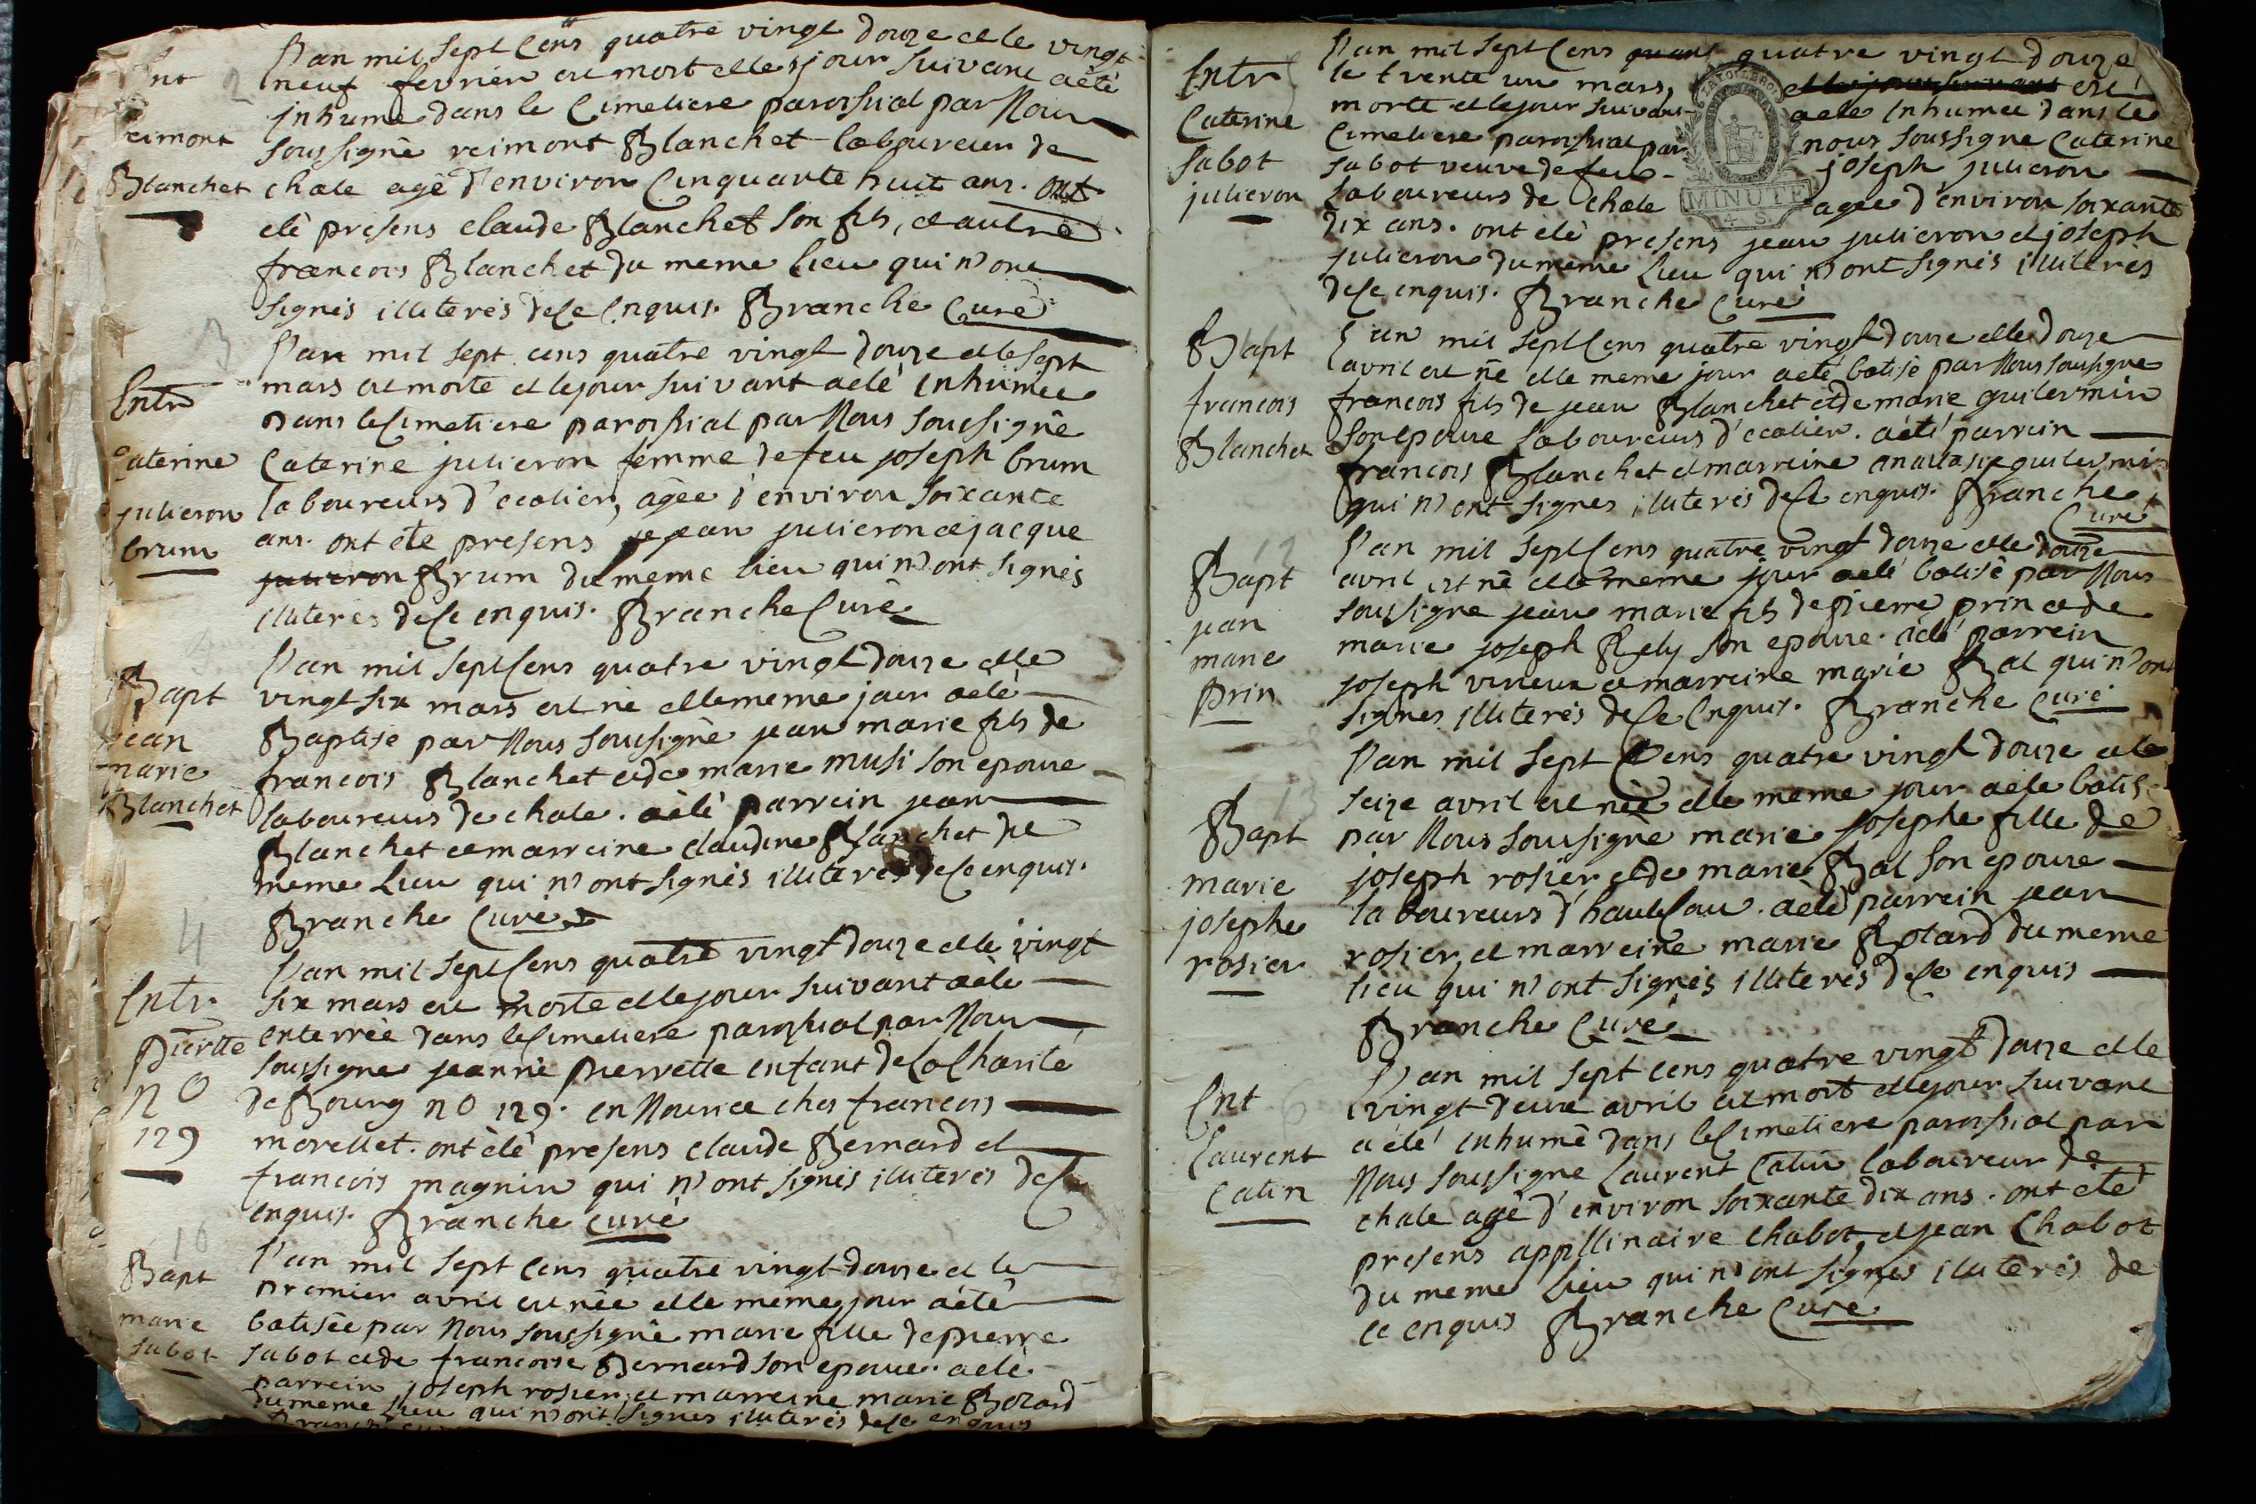 Ent 2
reimont
Blanchet
L'an mil sept cens quatre vingt douze et le vingt
neuf fevrier est mort et le jour suivant a été
inhumé dans le Cimetiere paroissial par Nous
soussigné reimont Blanchet laboureur de
chale agé d'environ Cinquante huit ans. ont
été presens claude Blanchet son fils, et autre
francois Blanchet du meme lieu qui n'ont
signés illiterés de ce Enquis. Branche Curé
3
Entr
Caterine
julieron
brum
L'an mil sept cens quatre vingt douze et le sept
mars est morte et le jour suivant a eté inhumée
Dans le Cimetiere paroissial par Nous soussigné
Caterine julieron femme de feu joseph brum
laboureurs d'ecotier, agée d'environ soixante
ans. ont été presens jean julieron et jacque
julieron Brum du meme lieu qui n'ont signés
illiterés de ce enquis. Branche Curé
Bapt
jean
marie
Blanchet
L'an mil sept Cens quatre vingt douze et le
vingt six mars est né et le meme jour a été
Baptisé par Nous soussigné jean marie fils de
francois Blanchet et de marie musi son epouse
laboureurs de chale. a été parrein jean
Blanchet et marreine claudine Blanchet du
meme Lieu qui n'ont signés illiterés de ce enquis.
Branche Curé
4
Entr.
Pierette
N O
129
L'an mil sept Cens quatre vingt douze et le vingt
six mars est morte et le jour suivant a été
enterrée dans le Cimetiere paroissial par Nous
soussigné jeanne Pierrette enfant de la Charité
de Bourg n O 129. en Nourice ches francois
morellet. ont été presens claude Bernard et
francois magnin qui n'ont signés illiterés de ce
enquis. Branche curé
10
Bapt
marie
sabot
L'an mil sept Cens quatre vingt douze et le
premier avril est née et le meme jour a été
batisée par Nous soussigné marie fille de pierre
sabot et de francoise Bernard son epouse. a été
parrein joseph rosier, et marreine marie Botard
du meme Lieu qui n'ont signés illiterés de ce enquis
Branche
Entr
Caterine
Sabot
julieron
L'an mil sept Cens quant quatre vingt douze
le trente un mars, et le jour suivant est
morte et le jour suivant a eté inhumée dans le
Cimetiere paroissial par nous soussigné Caterine
sabot veuve de feu joseph julieron
Laboureurs de chale agée d'environ soixante
dix ans. ont été presens jean julieron et joseph
julieron du meme Lieu qui n'ont signés illiterés
de ce enquis. Branche Curé
MINUTE
4. S.
Bapt
francois
Blanchet
L'an mil sept Cens quatre vingt douze et le douze
avril est né et le meme jour a eté batisé par Nous soussigné
francois fils de jean Blanchet et de marie guilermin
son epouse laboureurs d'ecotier. a eté parrein
francois Blanchet et marreine anastasie guilermin
qui n'ont signés illiterés de ce enquis. Branche
Curé
12
Bapt
jean
marie
Prin
L'an mil sept Cens quatre vingt douze et le douze
avril est né et le meme jour a eté batisé par Nous
soussigné jean marie fils de pierre prin et de
marie joseph Rely son epouse. a eté parrein
joseph vineux et marreine marie Bal qui n'ont
signés illiterés de ce Enquis. Branche Curé
13
Bapt
marie
josephe
rosier
L'an mil sept Cens quatre vingt douze et le
seize avril est née et le meme jour a été batisé
par Nous soussigné marie josephe fille de
joseph rosier et de marie Bal son epouse
laboureurs d' . a eté parrein jean
rosier, et marreine marie Botard du meme
lieu qui n'ont signés illiterés de ce enquis
Branche Curé
Ent 6
Laurent
Catin
L'an mil sept cens quatre vingt douze et le
vingt deux avril est mort et le jour suivant
a été inhumé dans le Cimetiere paroissial par
Nous soussigné Laurent Catin laboureur de
chale agé d'environ soixante dix ans. ont eté
presens appllinaire Chabot, et jean Chabot
du meme lieu qui n'ont signés illiterés de
ce enquis Branche Curé